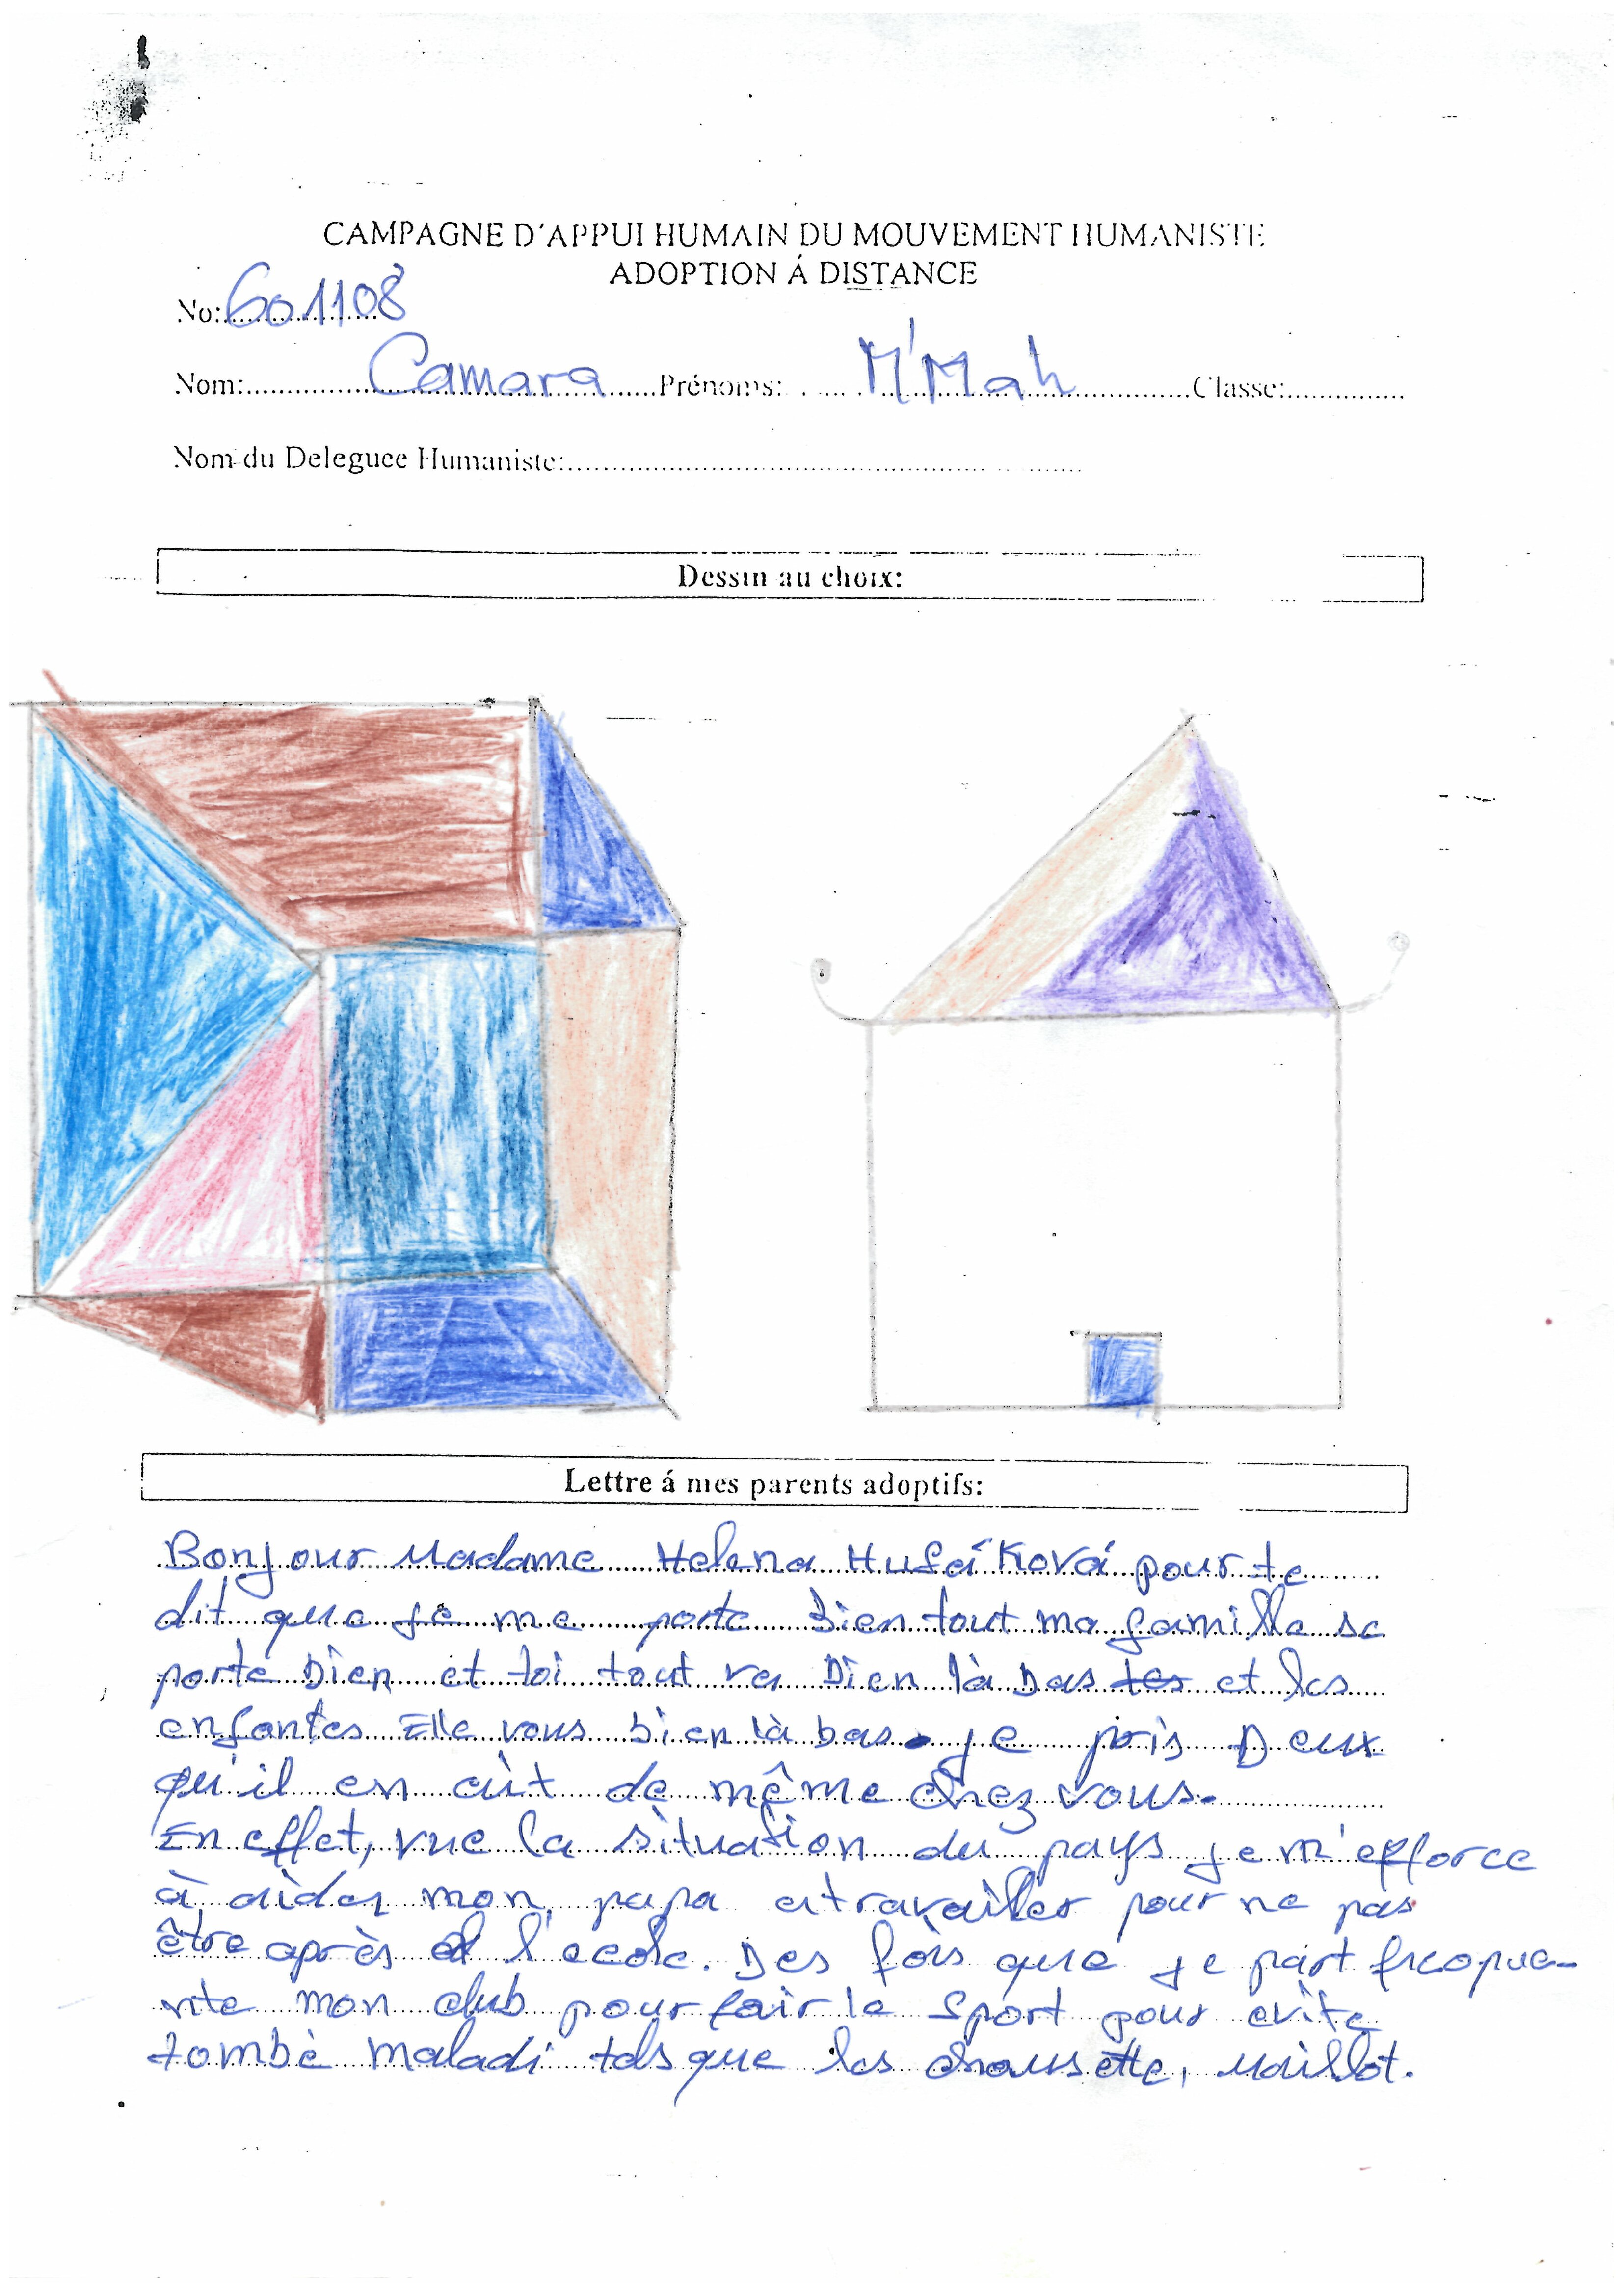 CAMPAGNE D'APPUI HUMAIN DU MOUVEMENT HUMANISTE
ADOPTION Á DISTANCE
No: 601108
Nom: Camara Prénoms: M'Mah Classe:
Nom du Deleguee Humaniste:
Dessin au choix:
Lettre á mes parents adoptifs:
Bonjour Madame Helena Hufaí Kovaí pour te
dit que je me porte bien tout ma famille se
porte bien et toi tout va bien là bas et les
enfantes Elle vous bien là bas. je pris Deux
qu'il en aùt de même chez vous.
En effet, vue la situation du pays je m'efforce
à aider mon papa a travailler pour ne pas
être après l'ecole. Des fois que je part freque-
nte mon club pour fair le Sport pour evite
tombè maladi tels que les chaussette, maillot.